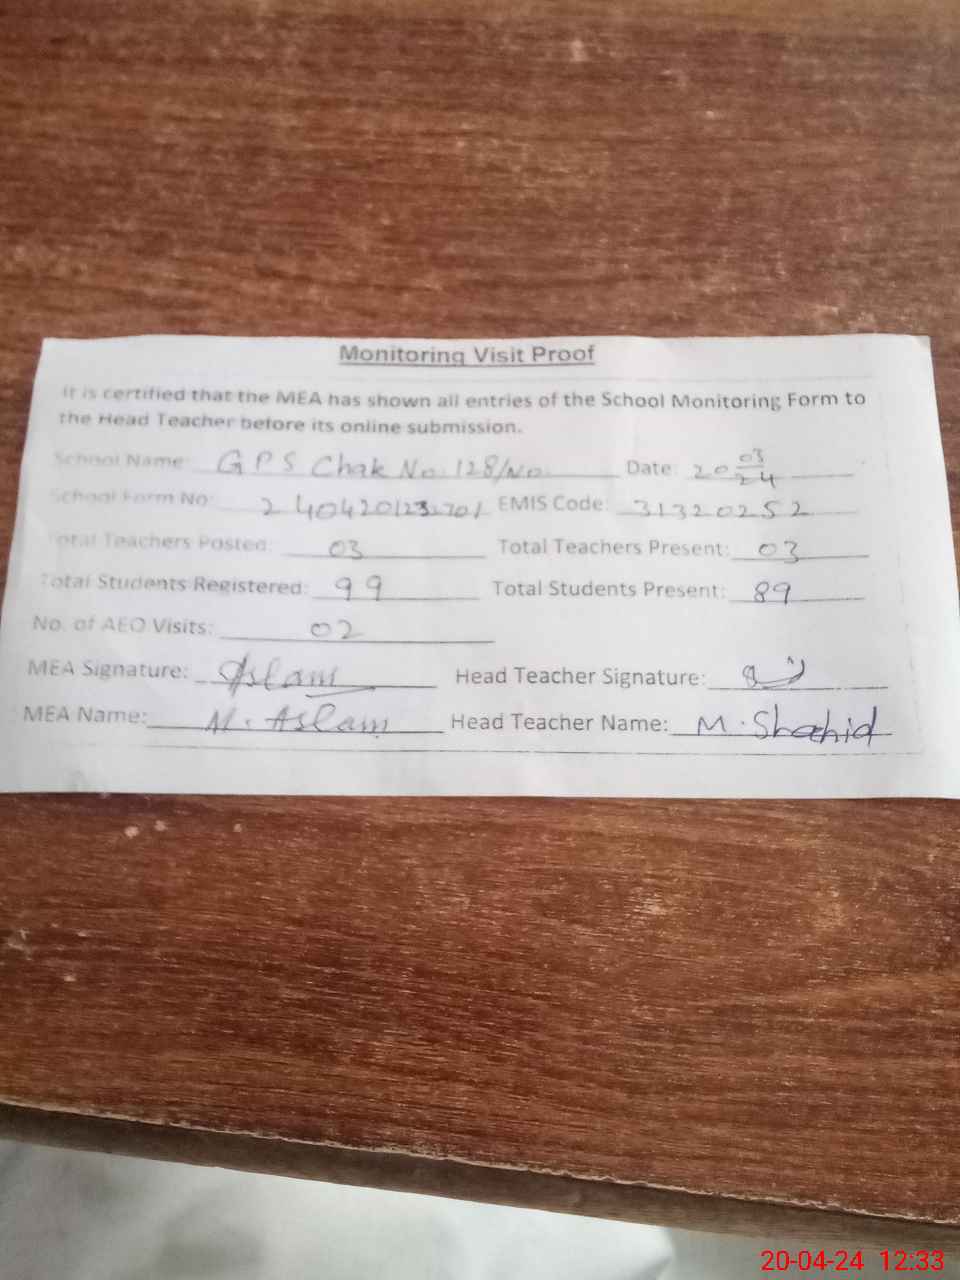 Monitoring Visit Proof
It is certified that the MEA has shown all entries of the School Monitoring Form to
the Head Teacher before its online submission.
School Name: GPS Chak No. 128/No. Date: 20 03/24
School Form No: EMIS Code: 31320252
Total Teachers Posted: 03 Total Teachers Present: 03
Total Students Registered: 99 Total Students Present: 89
No. of AEO Visits: 02
MEA Signature: Aslam Head Teacher Signature:
MEA Name: M. Aslam Head Teacher Name: M. Shahid
20-04-24 12:33